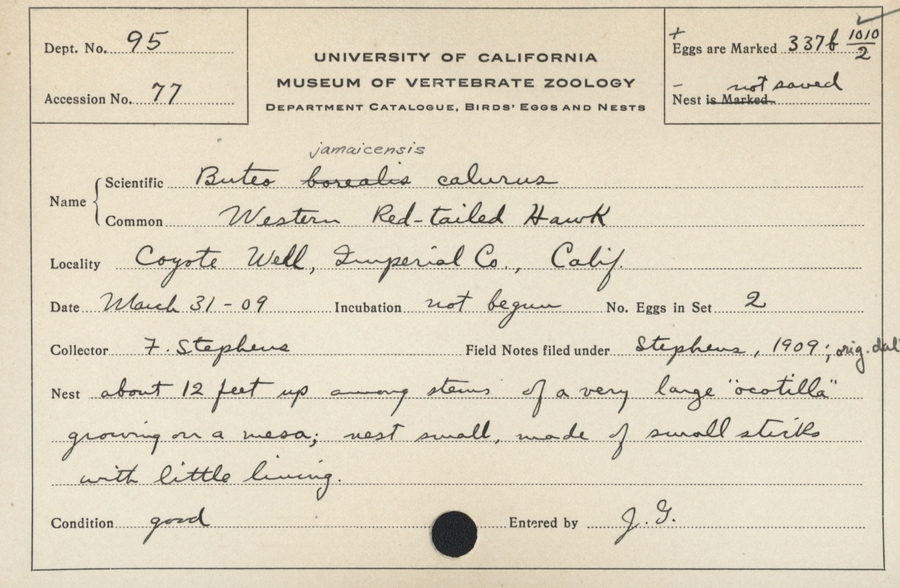 Dept. No. 95
Accession No. 77
UNIVERSITY OF CALIFORNIA
MUSEUM OF VERTEBRATE ZOOLOGY
DEPARTMENT CATALOGUE, BIRDS' EGGS AND NESTS
+
Eggs are Marked 337b 1010/2
- not saved
Nest is Marked
jamaicensis
Name
Scientific Buteo borealis calurus
Common Western Red-tailed Hawk
Locality Coyote Well, Imperial Co., Calif.
Date March 31-09 Incubation not begun No. Eggs in Set 2
Collector F. Stephens Field Notes filed under Stephens, 1909; orig. dat
Nest about 12 feet up among stems of a very large "ocotilla"
growing on a mesa; nest small, made of small sticks
with little lining.
Condition good Entered by J. G.